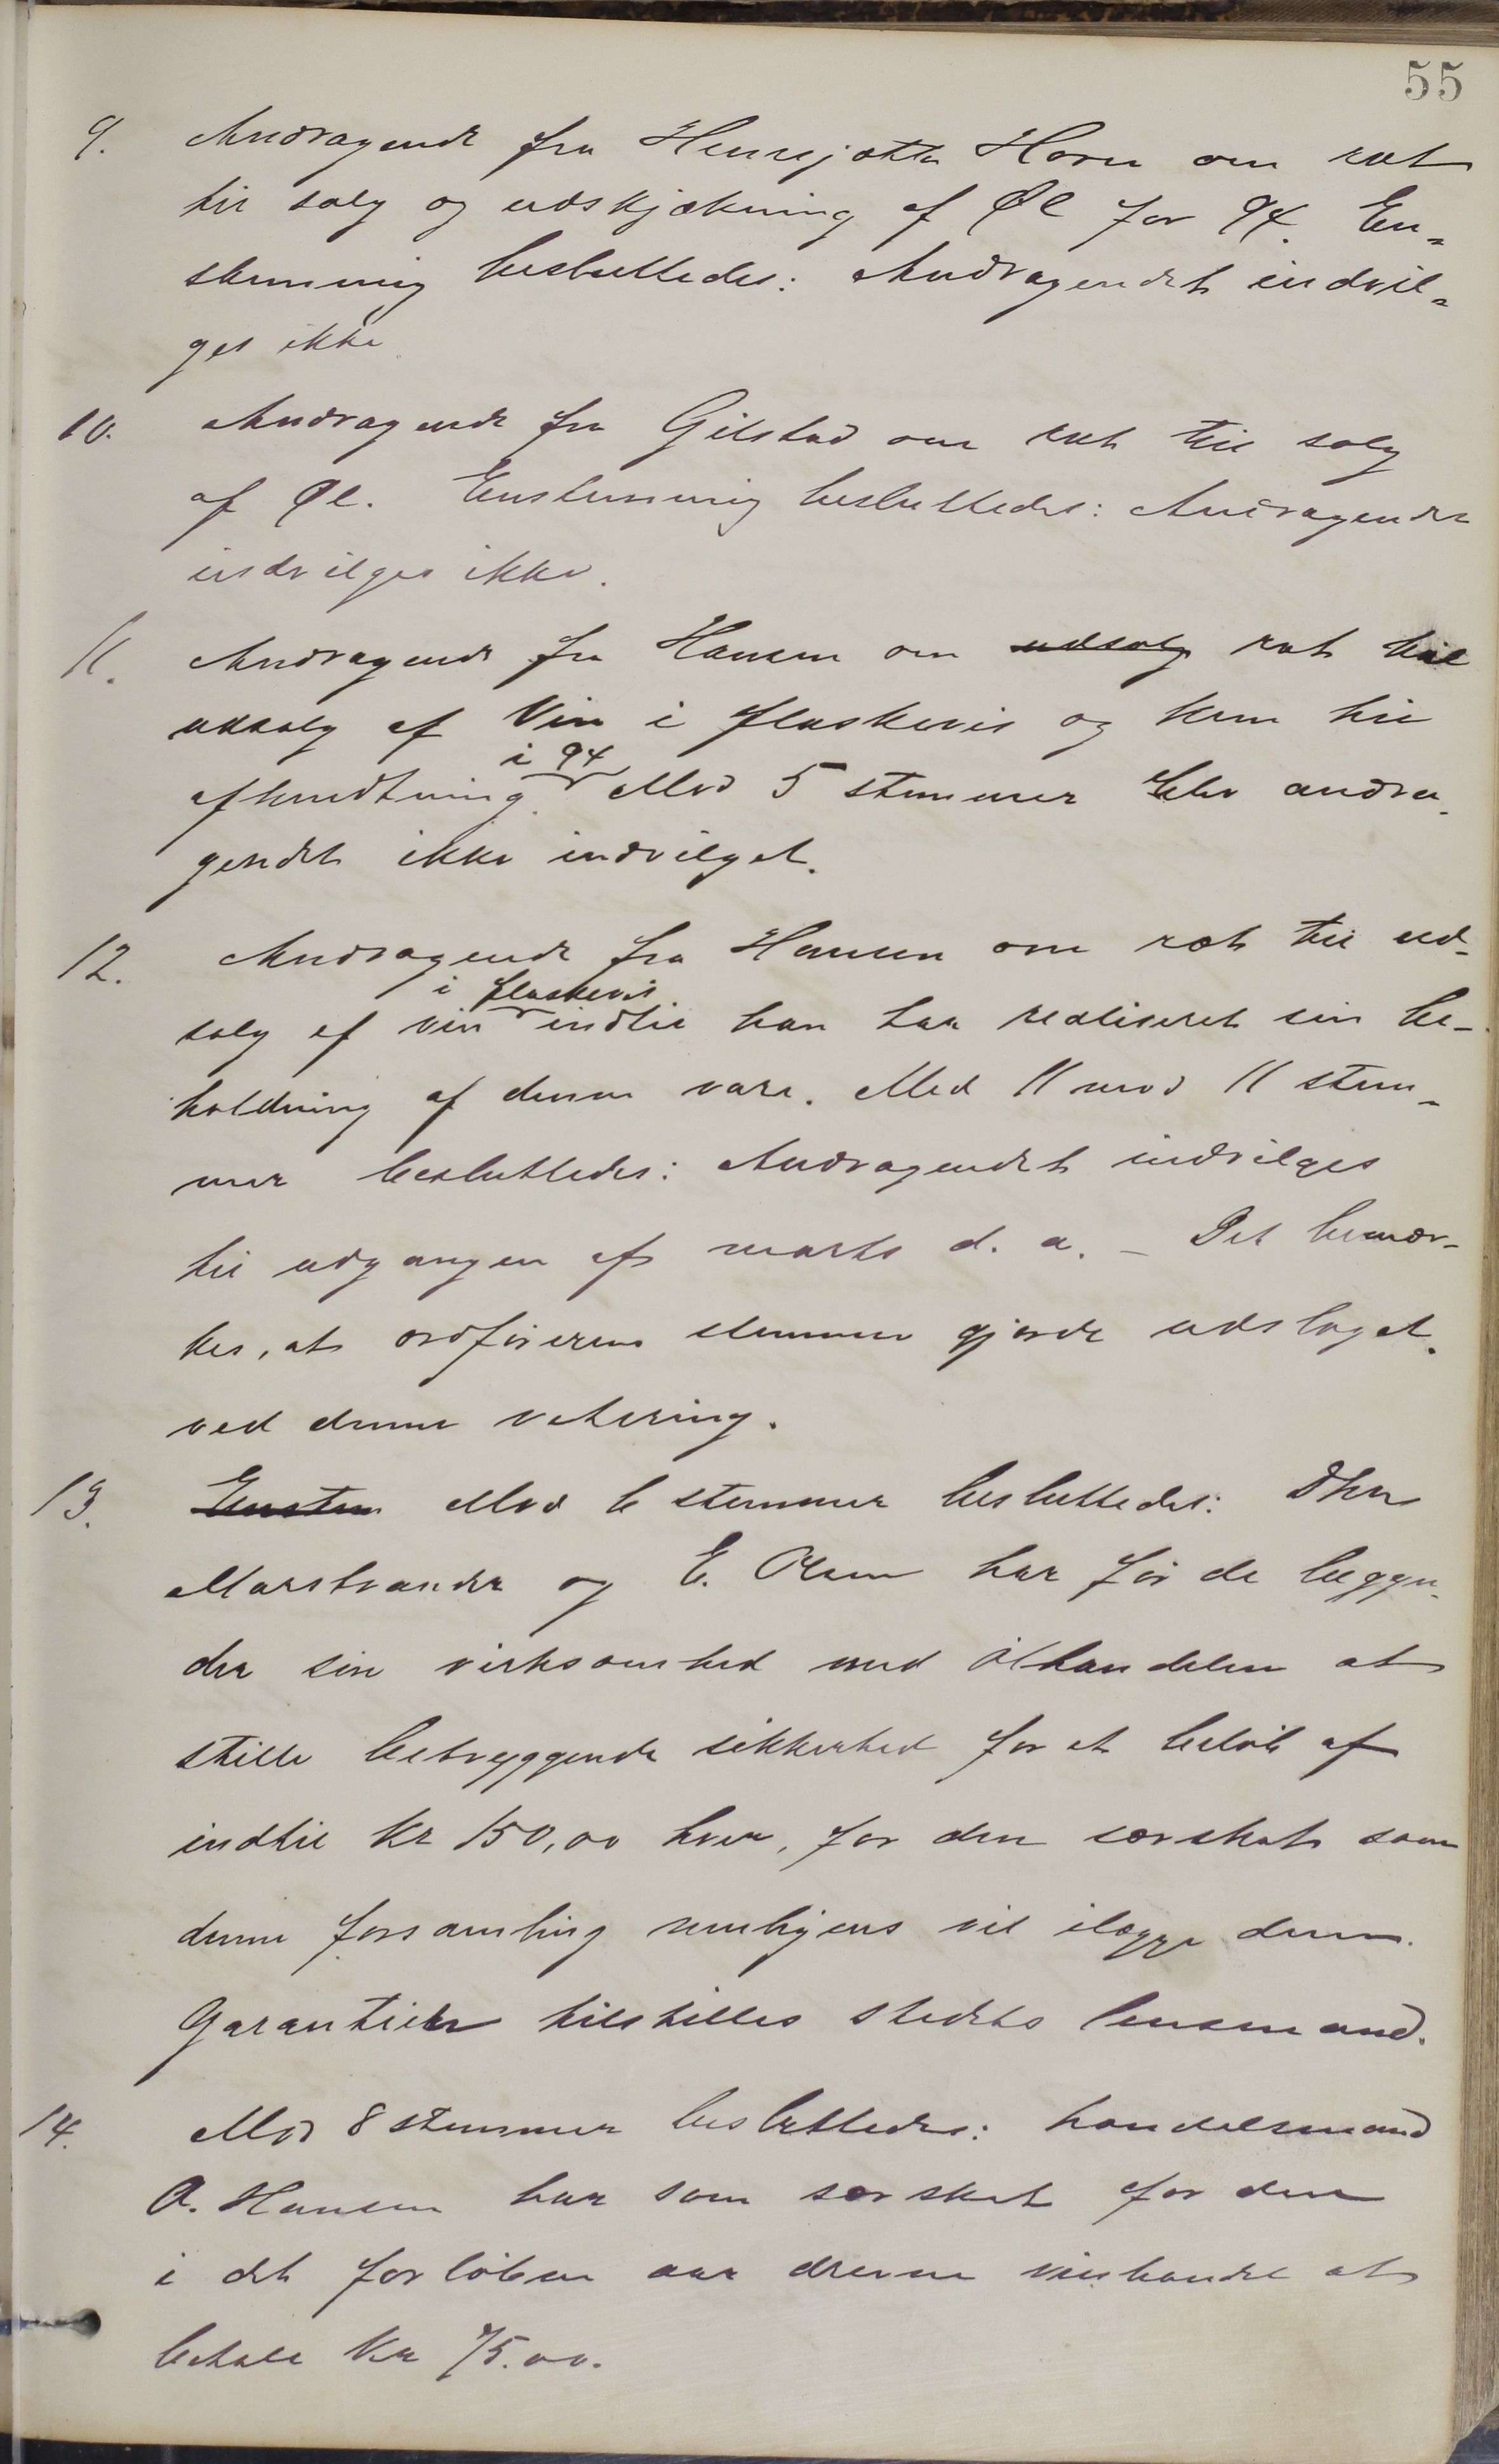 55
9. Andragende fra Henrijette Horn om ret
til salg og udskjækning af Øl for 94. En-
stemmig besluttedes: Andragendet indvil-
ges ikke
10. Andragende fra Gilstad om ret til salg
af Øl. Enstemmig besluttedes: Andragendet
indvilges ikke.
11. Andragende fra Hansen om udsalg ret til
udsalg af Vin i flaskevis og kun til
i 94
afhendtning. Mod 5 stemmer blev andra-
gendet ikke indvilget.
12. Andragende fra Hansen om ret til ud-
i flaskevis
salg af vin indtil han har realiseret sin be-
holdning af denne vare. Med 11 mod 11 stem-
mer besluttedes: Andragendet indvilges
til udgangen af marts d. a. – Det bemær-
kes, at ordførerens stemme gjorde udslaget
ved denne votering.
13. Enstem Mod 6 stemmer besluttedes: Dhrr
Marstrander og E. Olsen har før de begyn-
der sin virksomhed med ølhandelen at
stille betryggende sikkerhed for et beløb af
indtil Kr 150,00 hver, for den særskat som
denne forsamling muligens vil ilægge dem.
Garantien tilstilles stedets lensmand.
14. Mod 8 stemmer besluttedes: handelsmand
A. Hansen har som særskat for den
i det forløbne aar drevne vinhandel at
betale Kr 75.00.